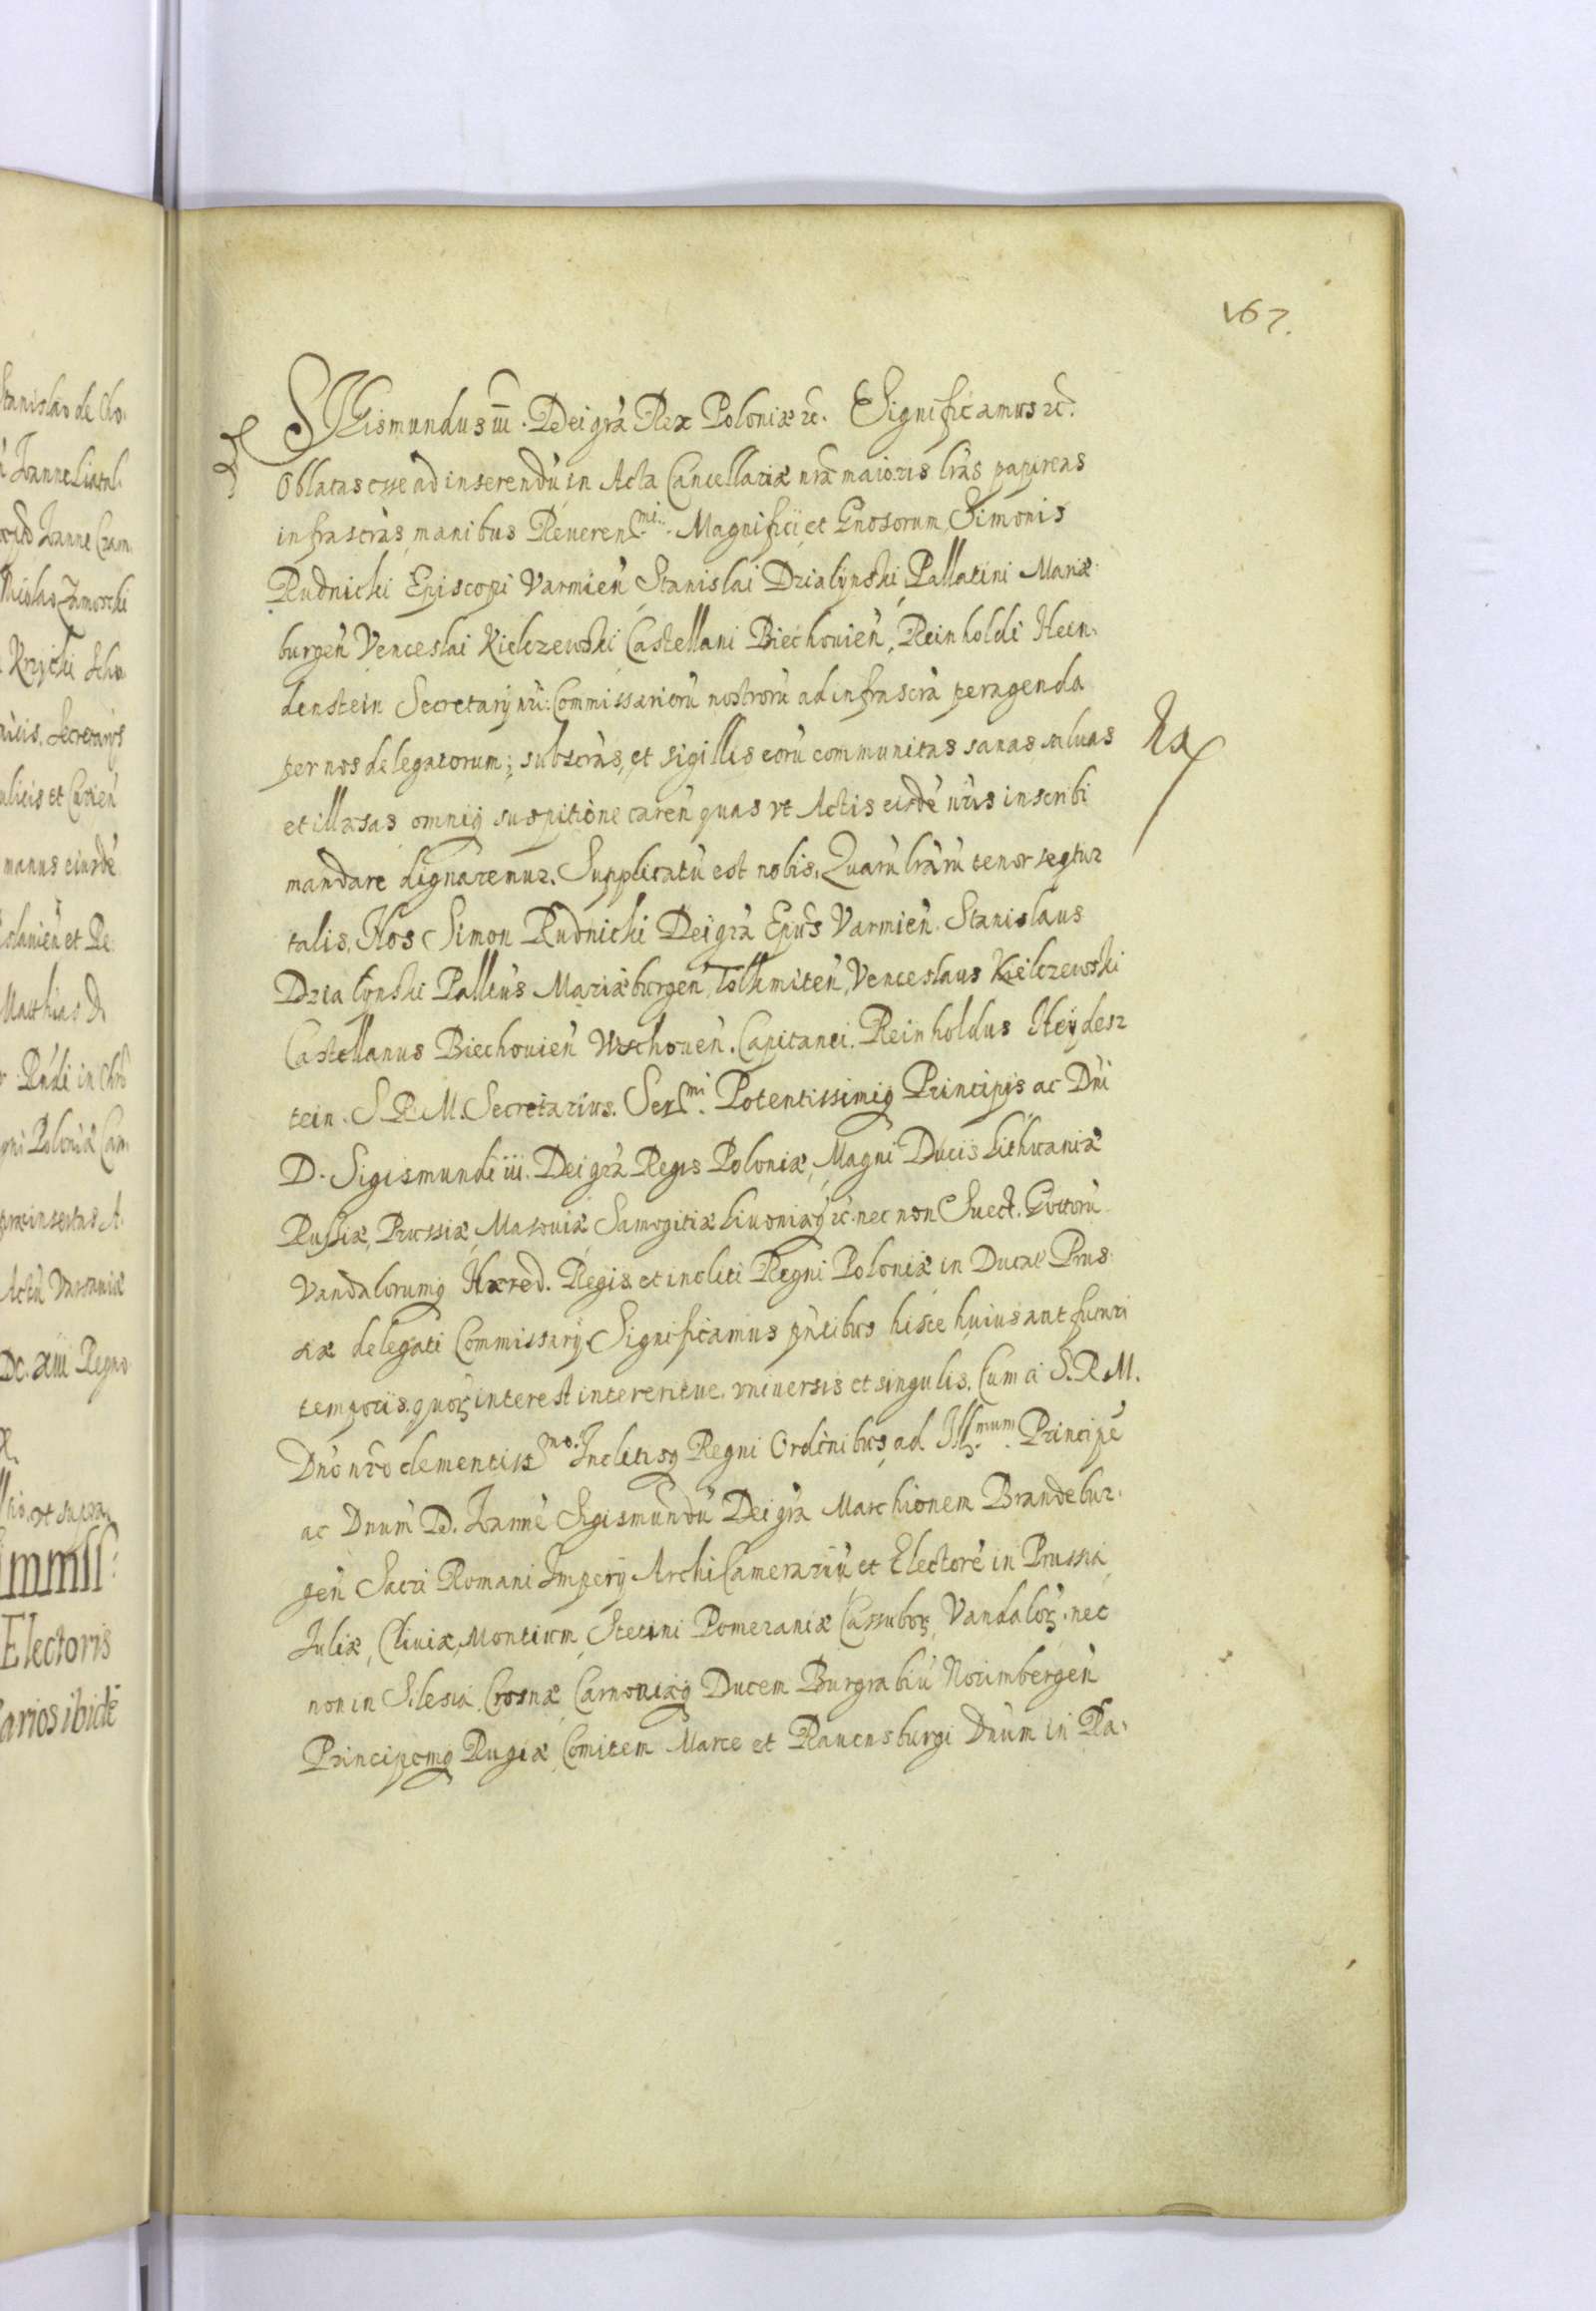 167.
SIGismundus iii. Dei grà Rex Poloniæ &c. Significamus &c.
Oblatas esse ad inserendù in Acta Cancellariæ nræ maioris lràs papireas
infrascràs manibus Reueren^mi. Magnifici et Gnosorum Simonis
Rudnicki Episcopi Varmień Stanislai Dzialÿnski Pallatini Mariæ
burgeń Venceslai Kielczewski Castellani Biechouień, Reinholdi Hein,
denstein Secretarÿ nri: Commissariorù nostrorù ad infrascrà peragenda
per nos delegatorum; subscràs, et sigillis eorù communitas sanas saluas
et illæsas omniq suspitione careń quas vt Actis eisdè nris inscribi
mandare dignaremur. Supplicatù est nobis. Quarù lràrù tenor seqtur
talis. Nos Simon Rudnicki Dei grà Epùs Varmień. Stanislaus
Dzialÿnski Pallnùs Mariæburgeń, Tolkmiteń, Venceslaus Kielczewski
Castellanus Biechouień Wschoueń. Capitanei. Reinholdus Heÿdesz
tein. S. R. M. Secretarius. Ser^mi. Potentissimiq Principis ac Dni
D. Sigismundi iii. Dei grà Regis Poloniæ, Magni Ducis Lithuaniæ
Russiæ, Prussiæ, Masouiæ Samogitiæ Liuoniæq &c. nec non Suec. Gottorù
Vandalorumq Hæred. Regis et incliti Regni Poloniæ in Ducat Prus
siæ delegati Commissarÿ Significamus pntibus hisce huius aut futuri
temporis. quoꝝ interest intereritue. vniuersis et singulis. Cum a S. R. M.
Dno nro clementiss^mo. Inclitisq Regni Ordinibus, ad Ill^mum. Principè
ac Dnum D. Ioannè Sigismundù Dei grà Marchionem Brandebur.
geń Sacri Romani Imperÿ Archi Camerariù, et Electorè in Prussia,
Iuliæ, Cliuiæ, Montium, Stetini Pomeraniæ Cassuboꝝ, Vandaloꝝ, nec
non in Silesia Crosnæ Carnouiæq Ducem Burgrabiù Norimbergeń
Principemq Rugiæ, Comitem Marce et Rauensburgi Dnum in Ra.